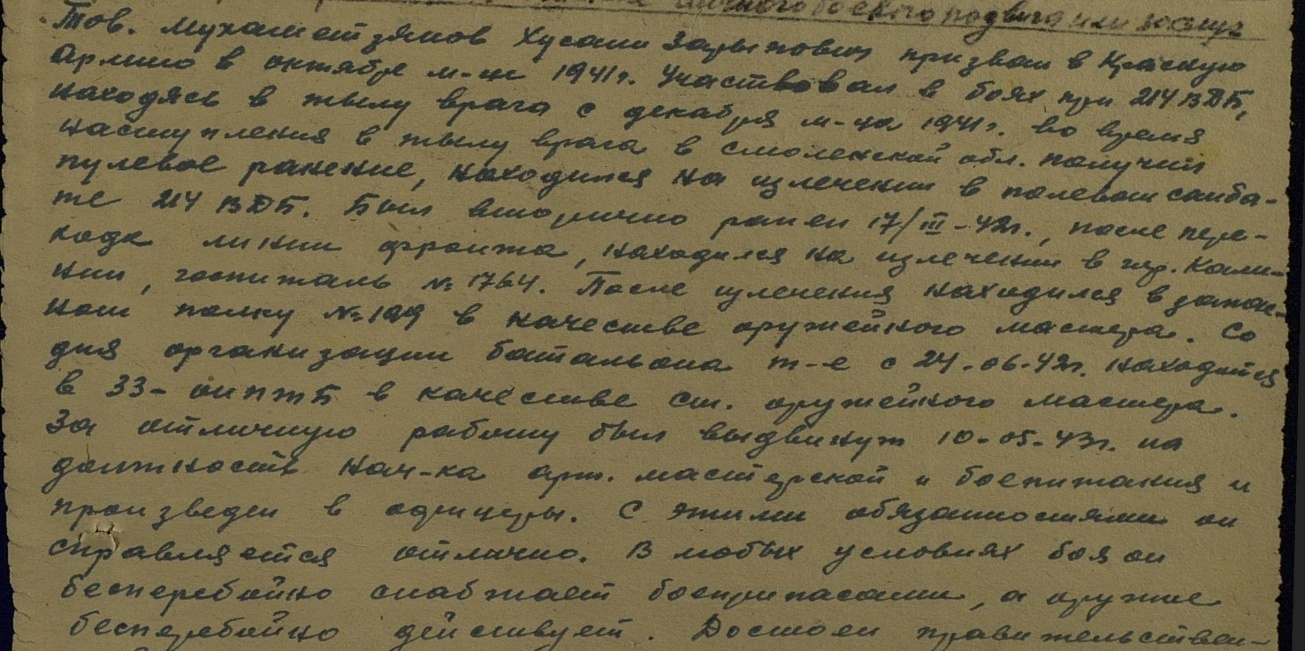 личного боевого подвига или заслуг
Тов. Мухаметзянов Хусаин Зарыпович призван в Красную
Армию в октябре м-це 1941 г. Участвовал в боях при 214 ВДБ,
находясь в тылу врага с декабря м-ца 1941 г. во время
наступления в тылу врага в Смоленской обл. получил
пулевое ранение, находился на излечении в полевом санба-
те 214 ВДБ. Был вторично ранен 17/III-42г., после пере-
хода линии фронта, находился на излечении в гор. Кали-
нин, госпиталь № 1764. После излечения находился в запас-
ном полку № 199 в качестве оружейного мастера. Со
дня организации батальона т-е с 24.06.42г. находится
в 33- оиптБ в качестве ст. оружейного мастера.
За отличную работу был выдвинут 10-05-43г. на
должность нач-ка арт. мастерской и боепитания и
произведен в офицеры. С этими обязанностями он
справляется отлично. В любых условиях боя он
бесперебойно снабжает боеприпасами, а оружие
бесперебойно действует. Достоен правительствен-